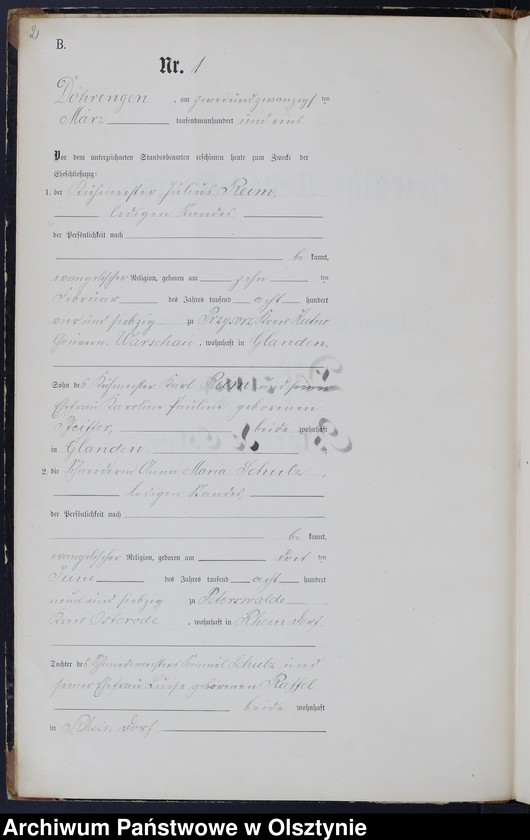 2
B.
Nr. 1
Döhringen, am zwei und zwanzigsten
März tausendneunhundert und eins.
Vor dem unterzeichneten Standesbeamten erschienen heute zum Zwecke der
Eheschließung:
1. der Kuhmeister Julius
ledigen Standes
der Persönlichkeit nach
be kannt,
evangelischer Religion, geboren am zehn ten
Februar des Jahres tausend acht hundert
vier und siebzig zu Kreis Kutno
Gouvern. Warschau, wohnhaft in Glanden,
Sohn des Kuhmeister Karl und seiner
Ehefrau Karoline Pauline geborenen
beide wohnhaft
in Glanden
2. die Schneiderin Anna Maria Schulz,
ledigen Standes,
der Persönlichkeit nach
be kannt,
evangelischer Religion, geboren am ten
Juni des Jahres tausend acht hundert
neun und siebzig zu Peterswalde
Kreis Osterode, wohnhaft in Rhein Dorf
Tochter des Samuel Schulz und
seiner Ehefrau Luise geborenen
beide wohnhaft
in Rhein Dorf
Archiwum Państwowe w Olsztynie